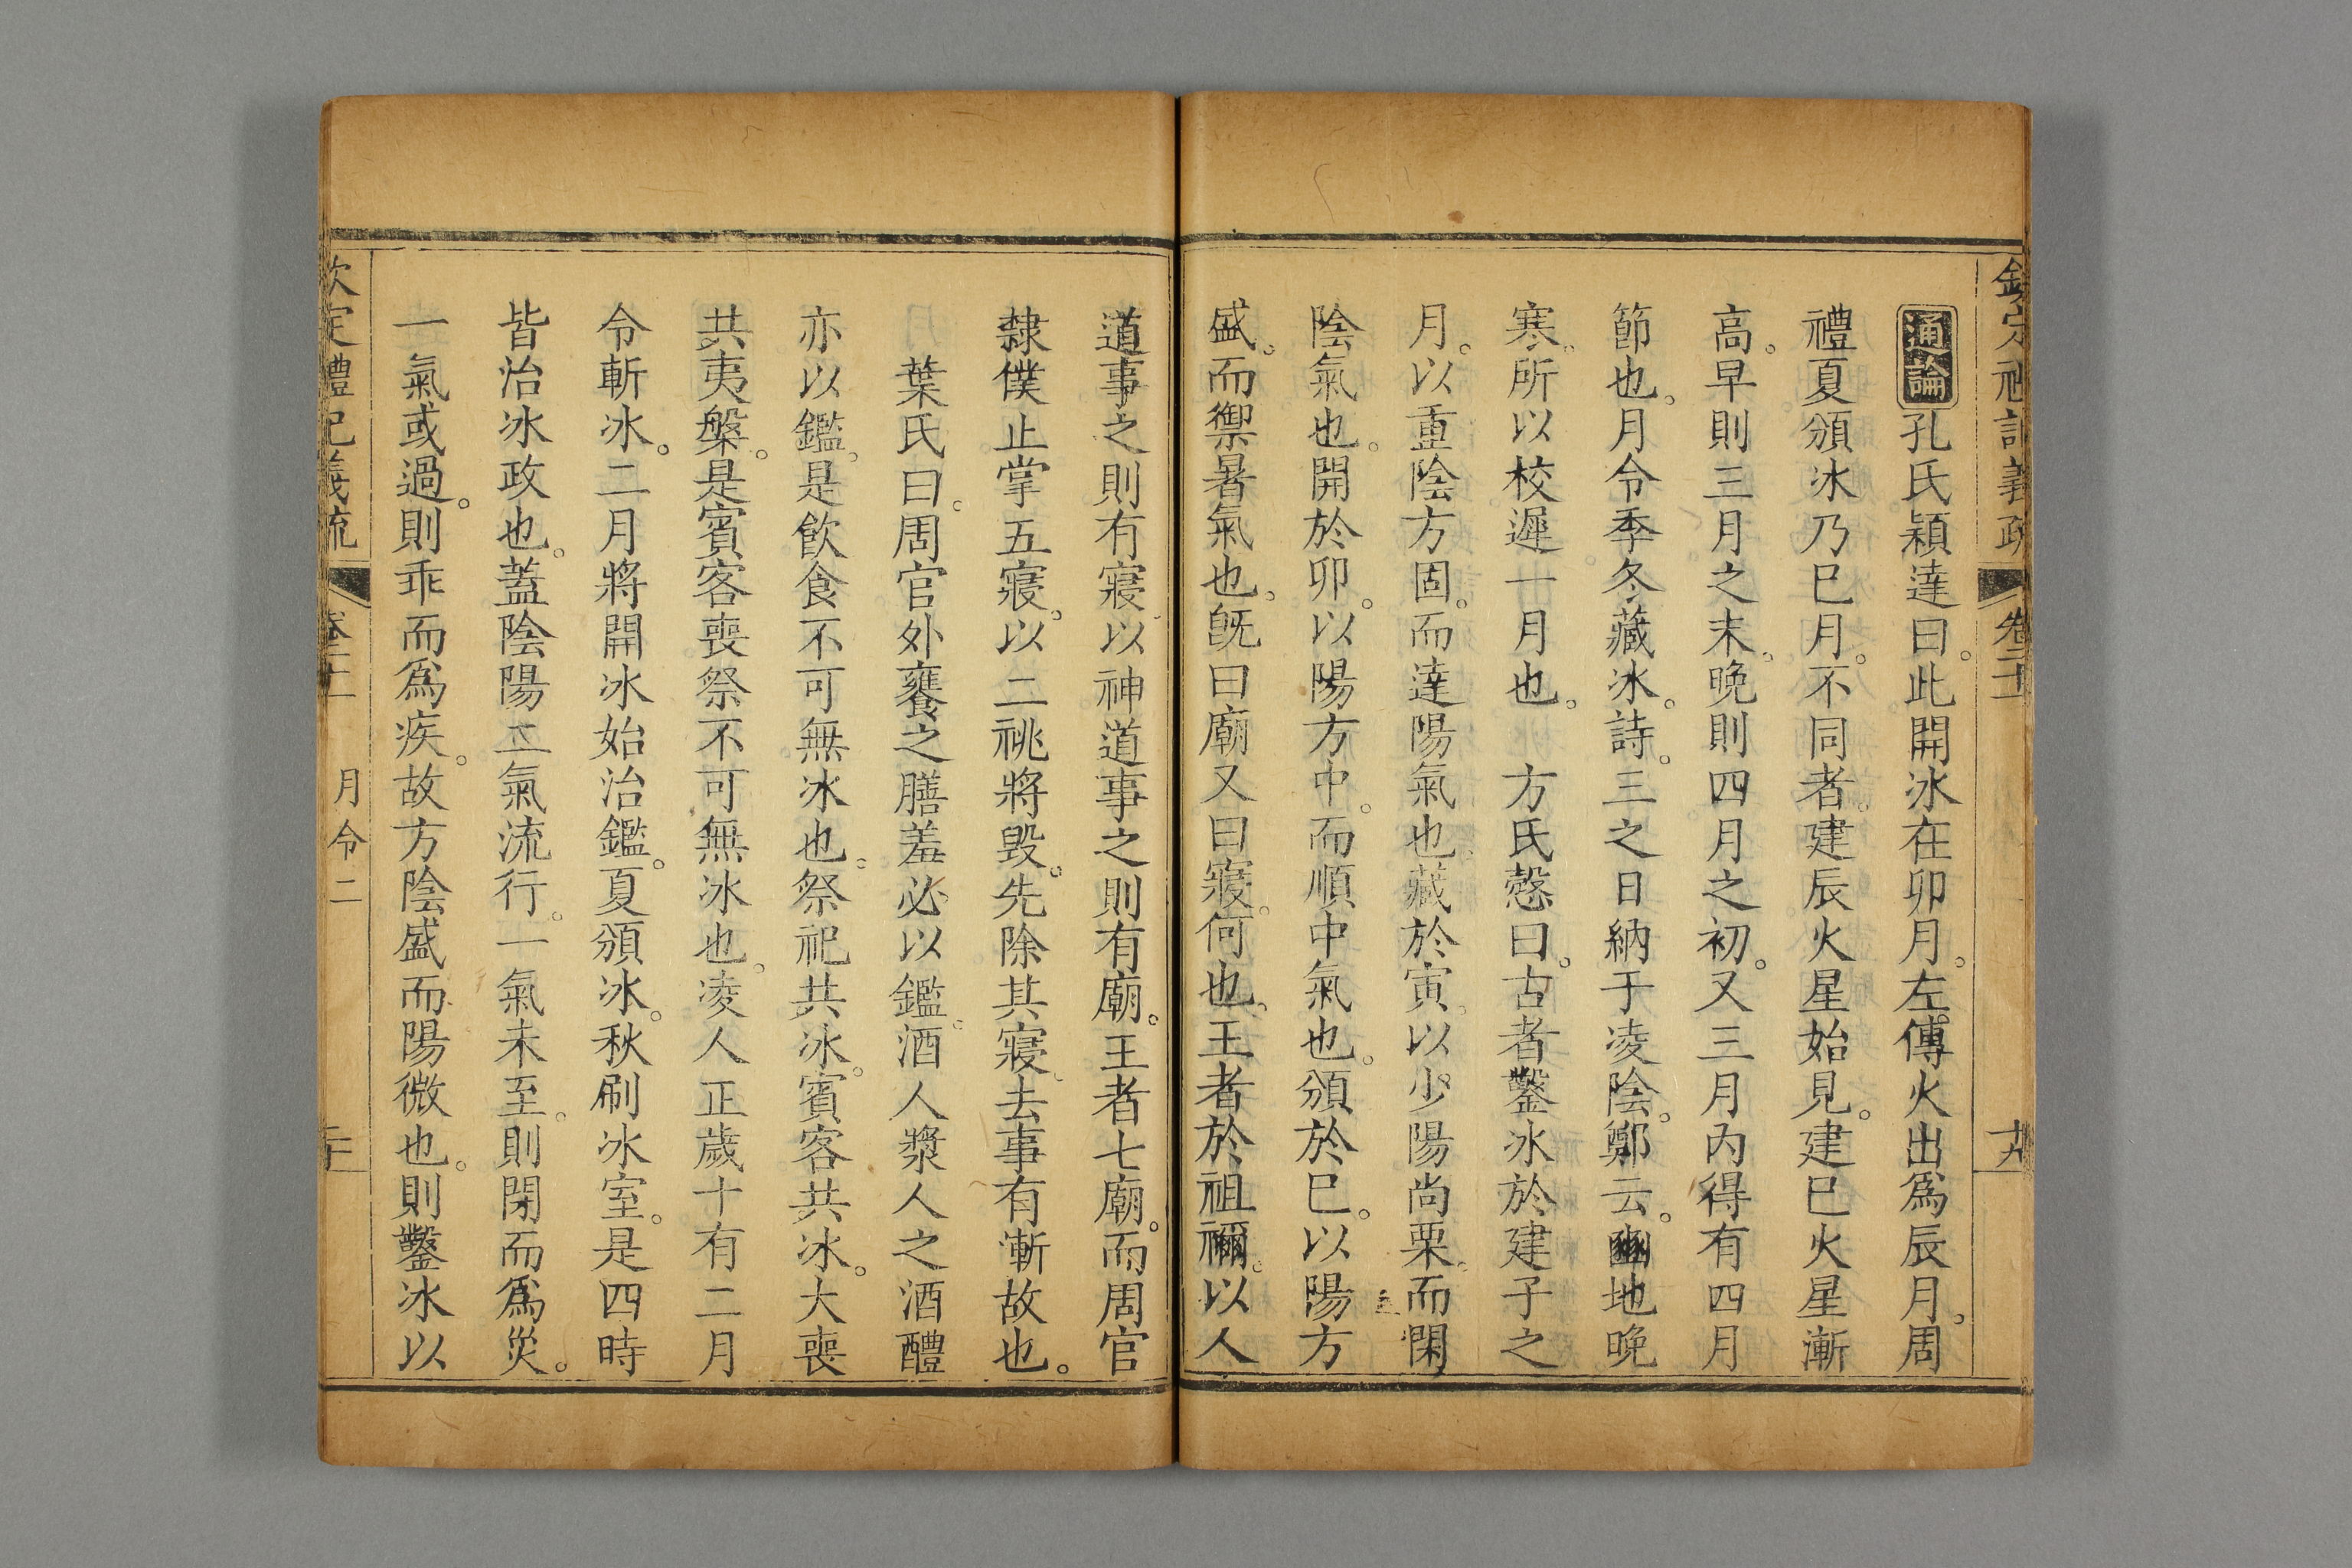 欽定禮記義疏 卷二十 十九
通論孔氏穎達曰。此開冰在卯月。左傳火出爲辰月。周
禮夏頒冰乃巳月。不同者。建辰火星始見。建巳火星漸
高。早則三月之末。晚則四月之初。又三月內得有四月
節也。月令季冬藏冰。詩。三之日納于凌陰。鄭云。豳地晚
寒。所以校遲一月也。 方氏慤曰。古者鑿冰於建子之
月。以重陰方固。而達陽氣也。藏於寅。以少陽尚栗。而閑
陰氣也。開於卯。以陽方中。而順中氣也。頒於巳。以陽方
盛。而禦暑氣也。旣曰廟又曰寢。何也。王者於祖禰。以人
道事之則有寢以神道事之則有廟。王者七廟。而周官
隸僕止掌五寢。以二祧將毀。先除其寢。去事有漸故也。
葉氏曰。周官外饔之膳羞必以鑑。酒人漿人之酒醴
亦以鑑。是飲食不可無冰也。祭祀共冰。賓客共冰。大喪
共夷槃。是賓客喪祭不可無冰也。凌人正歲十有二月
令斬冰。二月將開冰始治鑑。夏頒冰。秋刷冰室。是四時
皆治冰政也。蓋陰陽二氣流行。一氣未至。則閉而爲災。
一氣或過。則乖而爲疾。故方陰盛而陽微也。則鑿冰以
欽定禮記義疏 卷二十 月令二 二十